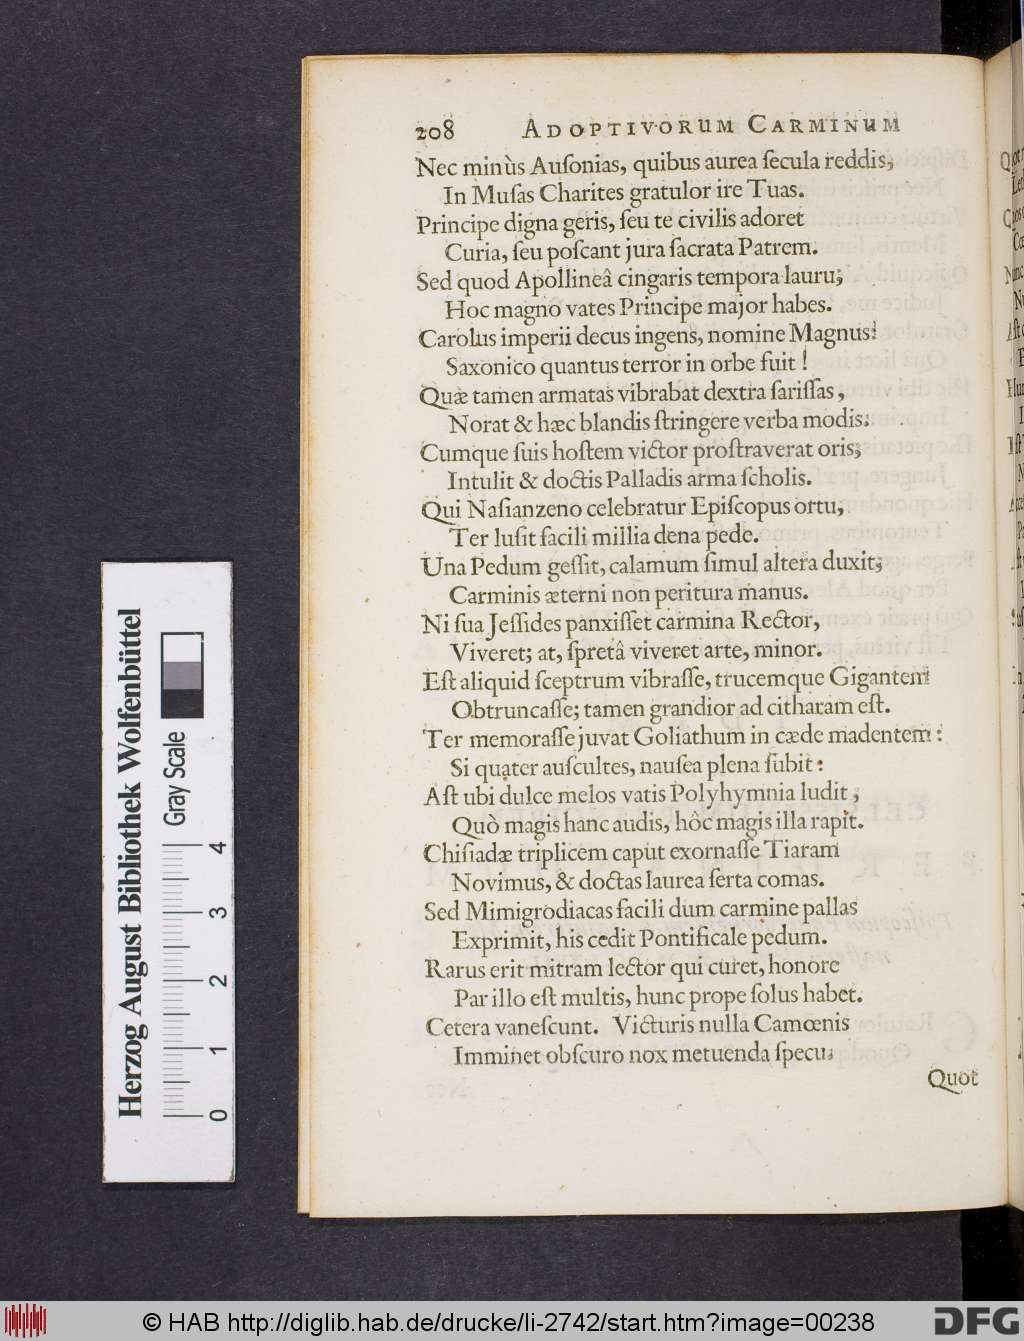 208 ADOPTIVORUM CARMINUM
Nec minùs Auſonias, quibus aurea ſecula reddis,
In Muſas Charites gratulor ire Tuas.
Principe digna geris, ſeu te civilis adoret
Curia, ſeu poſcant jura ſacrata Patrem.
Sed quod Apollineâ cingaris tempora lauru;
Hoc magno vates Principe major habes.
Carolus imperii decus ingens, nomine Magnus!
Saxonico quantus terror in orbe fuit!
Quæ tamen armatas vibrabat dextra ſariſſas,
Norat & hæc blandis ſtringere verba modis.
Cumque ſuis hoſtem victor proſtraverat oris;
Intulit & doctis Palladis arma ſcholis.
Qui Naſianzeno celebratur Epiſcopus ortu,
Ter luſit facili millia dena pede.
Una Pedum geſſit, calamum ſimul altera duxit;
Carminis æterni non peritura manus.
Ni ſua Jeſſides panxiſſet carmina Rector,
Viveret; at, ſpretâ viveret arte, minor.
Eſt aliquid ſceptrum vibraſſe, trucemque Gigantem
Obtruncaſſe; tamen grandior ad citharam eſt.
Ter memoraſſe juvat Goliathum in cæde madentem:
Si quater auſcultes, nauſea plena ſubit:
Aſt ubi dulce melos vatis Polyhymnia ludit,
Quò magis hanc audis, hôc magis illa rapit.
Chiſiadæ triplicem caput exornaſſe Tiaram
Novimus, & doctas laurea ſerta comas.
Sed Mimigrodiacas facili dum carmine pallas
Exprimit, his cedit Pontificale pedum.
Rarus erit mitram lector qui curet, honore
Par illo eſt multis, hunc prope ſolus habet.
Cetera vaneſcunt. Victuris nulla Camœnis
Imminet obſcuro nox metuenda ſpecu.
Quot
Herzog August Bibliothek Wolfenbüttel
Gray Scale
0 1 2 3 4
© HAB http://diglib.hab.de/drucke/li-2742/start.htm?image=00238
DFG